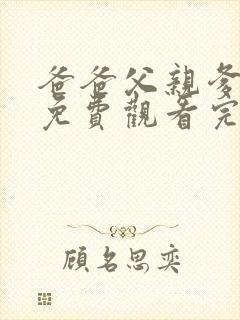 爸爸父親爹
免費觀看完
顧名思奕